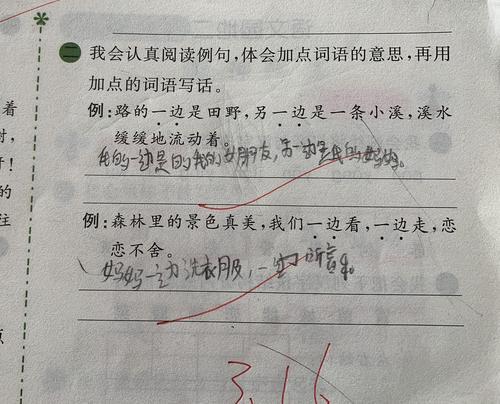 二 我会认真阅读例句,体会加点词语的意思,再用
加点的词语写话。
着
例:路的一边是田野,另一边是一条小溪,溪水
时,
缓缓地流动着。
我的一边是的我的女朋友,另一边是我的妈妈。
的
注
例:森林里的景色真美,我们一边看,一边走,恋
恋不舍。
妈妈一边洗衣服,一边
3.16